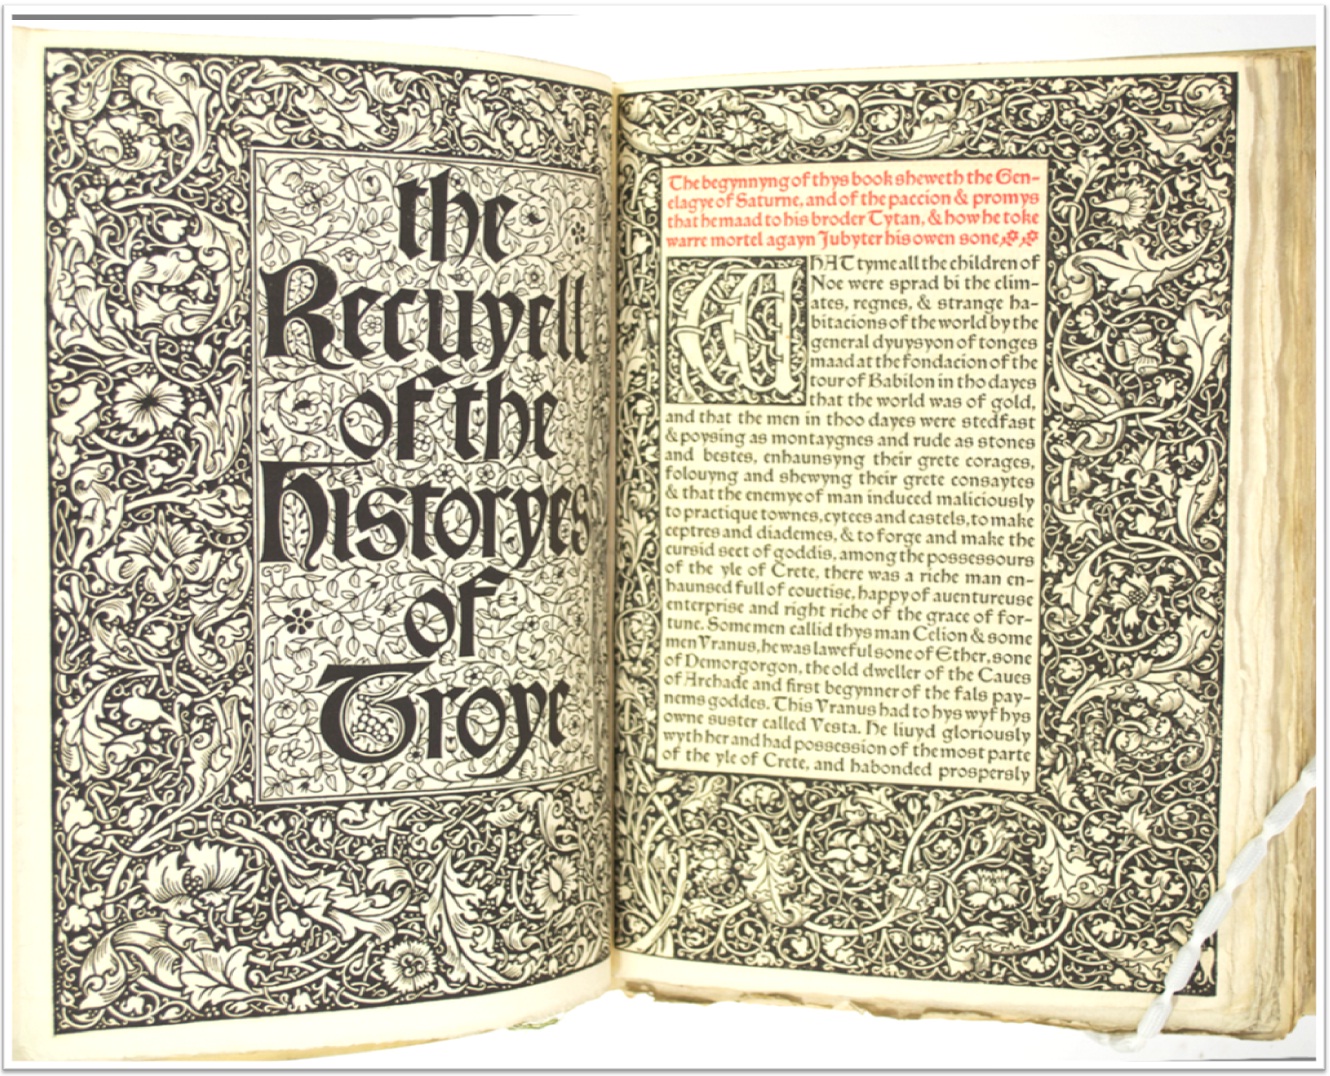 the
Recuyell
of the
historyes
of
Troye
The begynnyng of thys book sheweth the Gen-
elagye of Saturne, and of the paccion & promys
that he maad to his broder Tytan, & how he toke
warre mortel agayn Jubyter his owen sone,
WHAT tyme all the children of
Noe were sprad bi the clim-
ates, regnes, & strange ha-
bitacions of the world by the
general dyuysyon of tonges
maad at the fondacion of the
tour of Babilon in tho dayes
that the world was of gold,
and that the men in thoo dayes were stedfast
& poysing as montaygnes and rude as stones
and bestes, enhaunsyng their grete corages,
folouyng and shewyng their grete consaytes
& that the enemye of man induced maliciously
to practique townes, cytees and castels, to make
ceptres and diademes, & to forge and make the
cursid sect of goddis, among the possessours
of the yle of Crete, there was a riche man en-
haunsed full of couetise, happy of auentureuse
enterprise and right riche of the grace of for-
tune. Some men callid thys man Celion & some
men Vranus, he was lawefulsone of Ether, sone
of Demorgorgon, the old dweller of the Caues
of Archade and first begynner of the fals pay-
nems goddes. This Vranus had to hys wyf hys
owne suster called Vesta. He liuyd gloriously
wyth her and had possession of the most parte
of the yle of Crete, and habonded prospersly